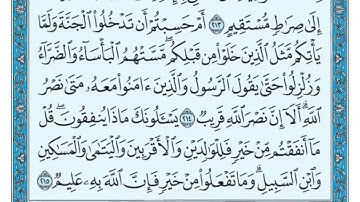 إِلَىٰ صِرَٰطٍ مُّسْتَقِيمٍ ۝٢١٣ أَمْ حَسِبْتُمْ أَن تَدْخُلُوا۟ ٱلْجَنَّةَ وَلَمَّا
يَأْتِكُم مَّثَلُ ٱلَّذِينَ خَلَوْا۟ مِن قَبْلِكُم ۖ مَّسَّتْهُمُ ٱلْبَأْسَآءُ وَٱلضَّرَّآءُ
وَزُلْزِلُوا۟ حَتَّىٰ يَقُولَ ٱلرَّسُولُ وَٱلَّذِينَ ءَامَنُوا۟ مَعَهُۥ مَتَىٰ نَصْرُ
ٱللَّهِ ۗ أَلَآ إِنَّ نَصْرَ ٱللَّهِ قَرِيبٌ ۝٢١٤ يَسْـَٔلُونَكَ مَاذَا يُنفِقُونَ ۖ قُلْ
مَآ أَنفَقْتُم مِّنْ خَيْرٍ فَلِلْوَٰلِدَيْنِ وَٱلْأَقْرَبِينَ وَٱلْيَتَٰمَىٰ وَٱلْمَسَٰكِينِ
وَٱبْنِ ٱلسَّبِيلِ ۗ وَمَا تَفْعَلُوا۟ مِنْ خَيْرٍ فَإِنَّ ٱللَّهَ بِهِۦ عَلِيمٌ ۝٢١٥